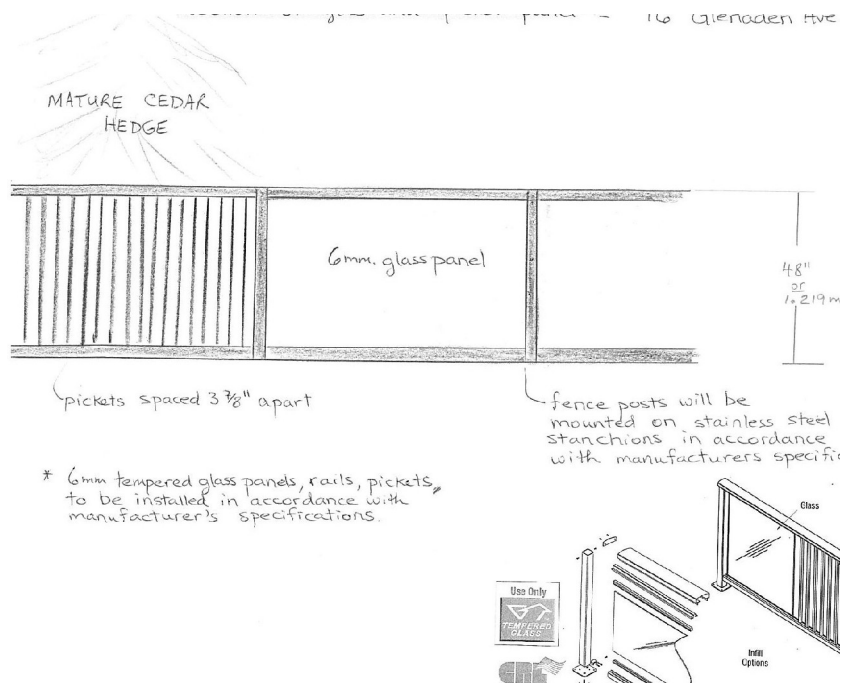 16 Glenaden Ave
MATURE CEDAR
HEDGE
6mm. glass panel
48"
or
1.219 m
pickets spaced 3 7/8" apart
fence posts will be
mounted on stainless steel
stanchions in accordance
with manufacturers specific
* 6mm tempered glass panels, rails, pickets,
to be installed in accordance with
manufacturer's specifications.
Glass
Use Only
TEMPERED
GLASS
CRL
Infill
Options